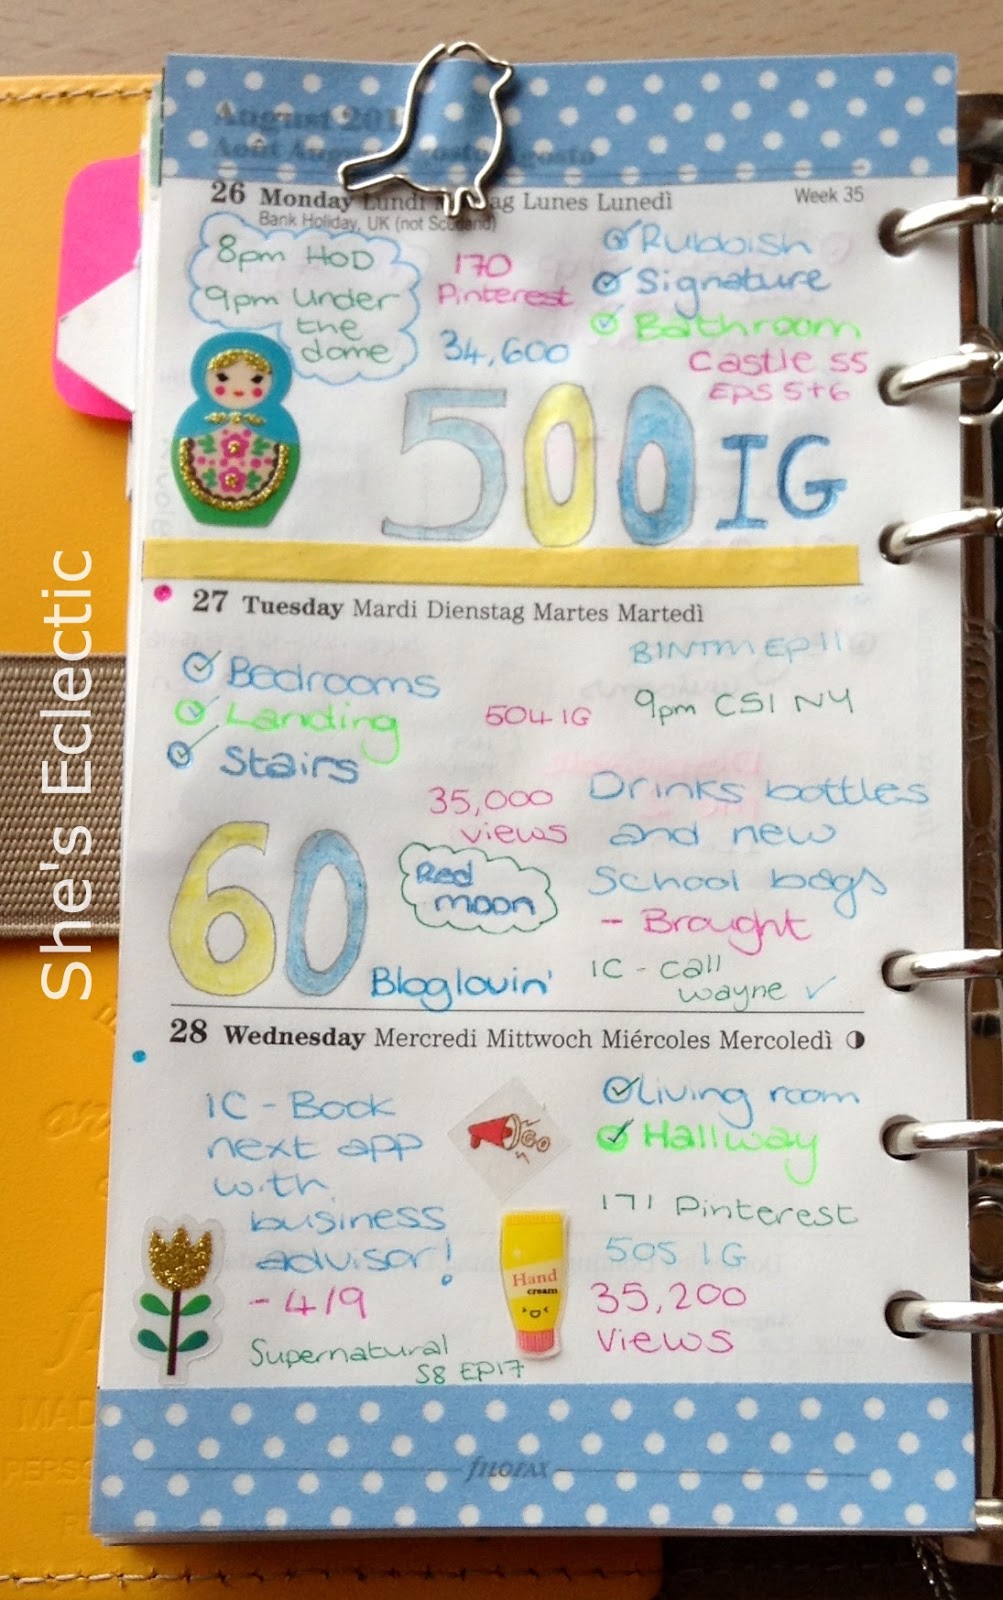 August 201
Août August Agosto Agosto
26 Monday Lundi Montag Lunes Lunedì
Week 35
Bank Holiday, UK (not Scotland)
8pm HOD
9pm Under
the
dome
170
Pinterest
34,600
Rubbish
Signature
Bathroom
Castle S5
EPS 5+6
500 IG
27 Tuesday Mardi Dienstag Martes Martedì
Bedrooms
Landing
Stairs
504 IG
BINTM EP 11
9pm CSI NY
35,000
views
Red
moon
Drinks bottles
and new
School bags
- Brought
IC - call
wayne ✓
60
Bloglovin'
28 Wednesday Mercredi Mittwoch Miércoles Mercoledì
IC - Book
next app
with
business
advisor!
- 4/9
Supernatural
S8 EP17
GO
Hand
cream
Living room
Hallway
171 Pinterest
505 IG
35,200
Views
filofax
She's Eclectic